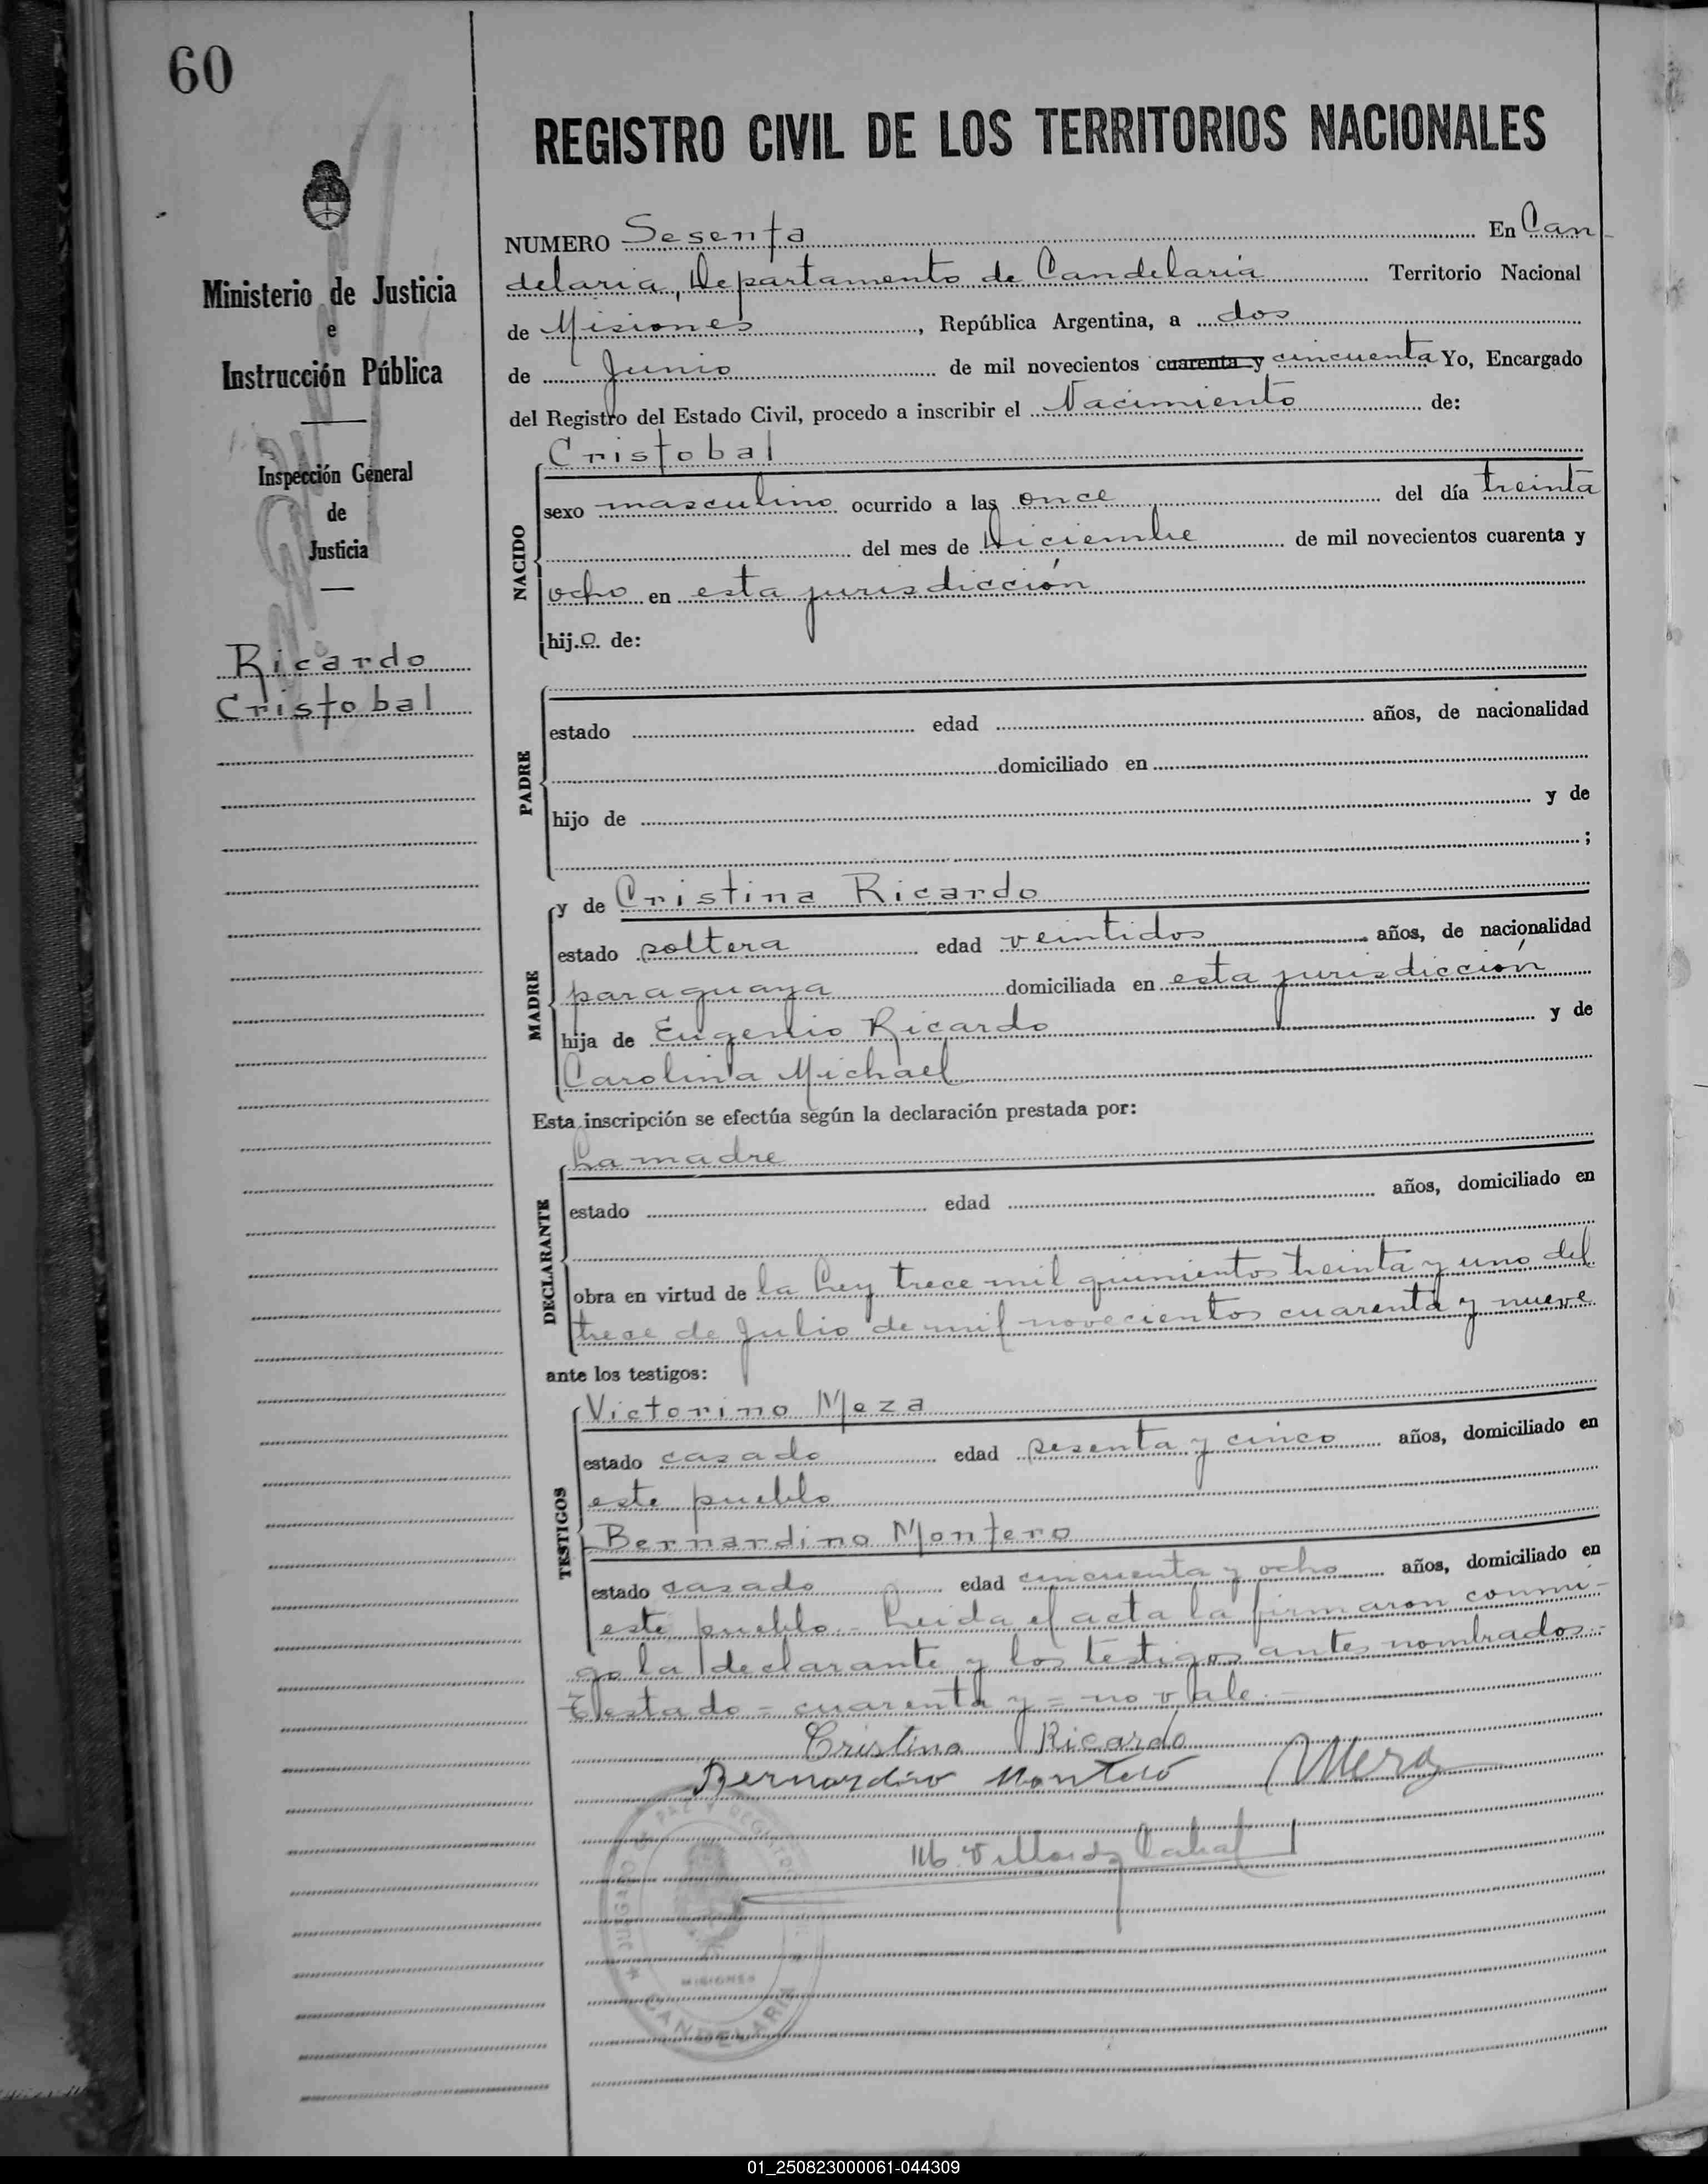 60
REGISTRO CIVIL DE LOS TERRITORIOS NACIONALES
Ministerio de Justicia
e
Instrucción Pública
Inspección General
de
Justicia
Ricardo
Cristobal
NUMERO Sesenta En Can-
delaria, Departamento de Candelaria Territorio Nacional
de Misiones, República Argentina, a dos
de Junio de mil novecientos cuarenta y cincuenta Yo, Encargado
del Registro del Estado Civil, procedo a inscribir el Nacimiento de:
NACIDO
Cristobal
sexo masculino ocurrido a las once del día treinta
del mes de Diciembre de mil novecientos cuarenta y
ocho en esta jurisdicción
hij o de:
PADRE
estado edad años, de nacionalidad
domiciliado en
hijo de y de
;
MADRE
y de Cristina Ricardo
estado soltera edad veintidos años, de nacionalidad
paraguaya domiciliada en esta jurisdicción
hija de Eugenio Ricardo y de
Carolina Michael
Esta inscripción se efectúa según la declaración prestada por:
DECLARANTE
La madre
estado edad años, domiciliado en
obra en virtud de la Ley trece mil quinientos treinta y uno del
trece de Julio de mil novecientos cuarenta y nueve
ante los testigos:
TESTIGOS
Victorino Meza
estado casado edad sesenta y cinco años, domiciliado en
este pueblo
Bernardino Montero
estado casado edad cincuenta y ocho años, domiciliado en
este pueblo.- Leida el acta la firmaron conmi-
go la declarante y los testigos antes nombrados.-
Testado = cuarenta y = no vale.-
Cristina Ricardo
Bernardino Montero Meza
JUZGADO DE PAZ Y REGISTRO
MISIONES
CANDELARIA
01_250823000061-044309